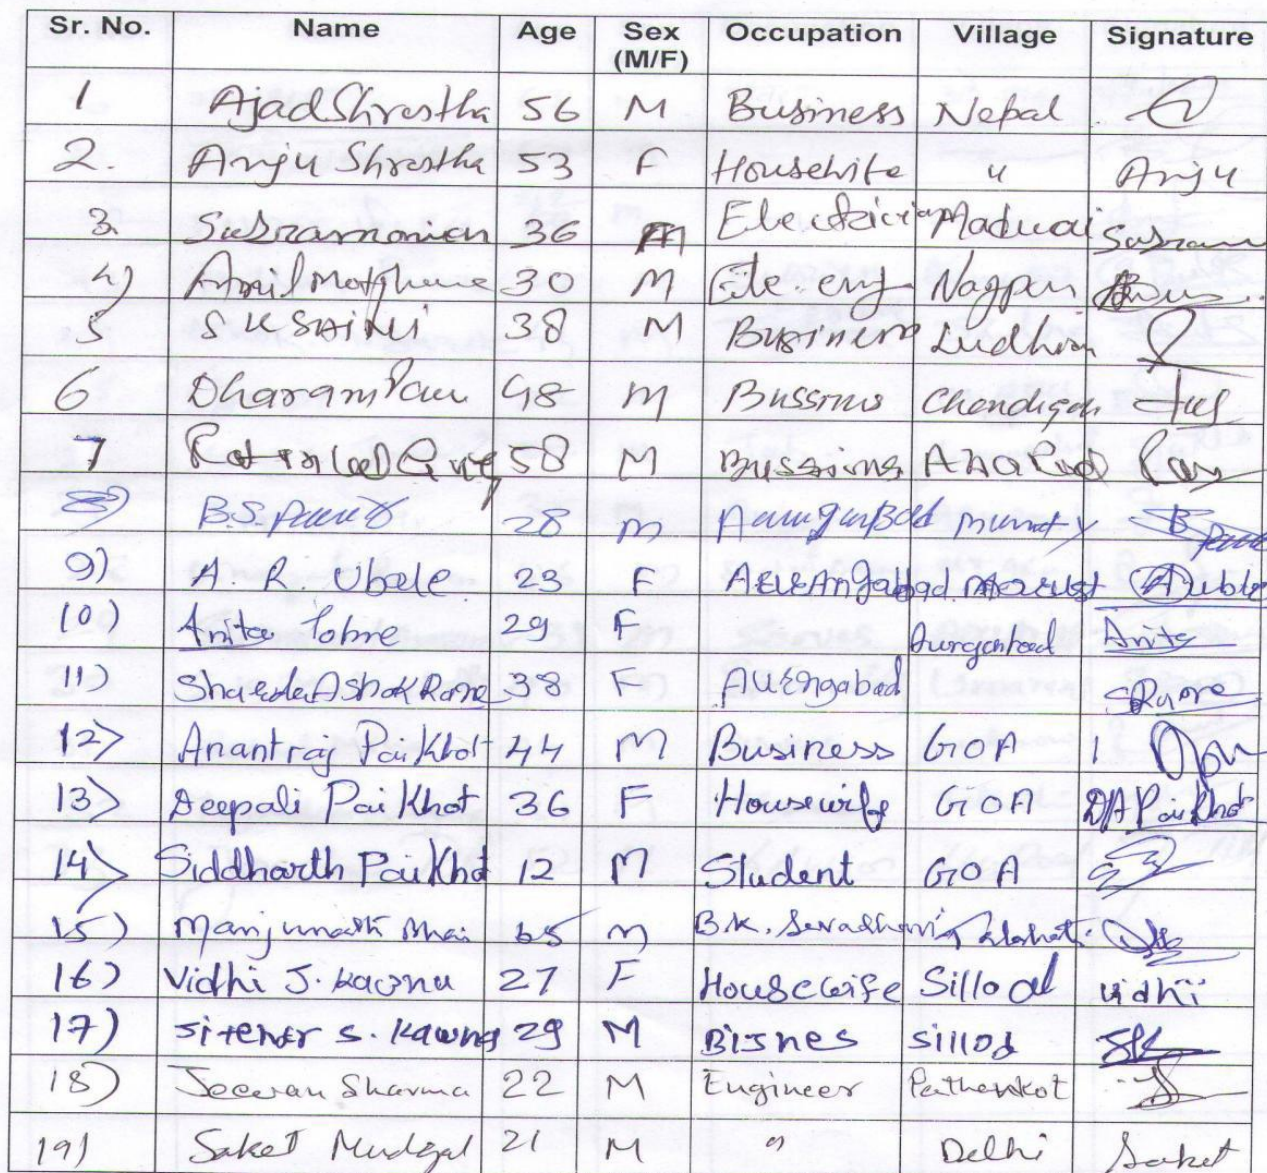 Sr. No. Name Age Sex (M/F) Occupation Village Signature
1 Ajad Shrestha 56 M Business Nepal
2. Anju Shrestha 53 F Housewife " Anju
3. Subramonien 36 M Electrician Maduai Subram
4) Anil 30 M Ele. eng Nagpur
5 S K SAINI 38 M Business Ludhian
6 Dharam 48 M Bussnus Chandigah
7 58 M Bussins
8) B.S. 28 M Aurangabad
9) A R. Ubale 23 F AURAngabad Auble
10) Anita 29 F Aurgabad Anita
11) Sharda Ashok Rane 38 F AUrangabad Rane
12) Anantraj PaiKhot 44 M Business GOA
13) Deepali PaiKhot 36 F Housewife GOA DA PaiKhot
14) Siddharth PaiKhot 12 M Student GOA
15) Manjunath Bhai 65 M B.K.
16) Vidhi J. Kawnu 27 F Housewife Sillod vidhi
17) S. Kawna 29 M Bisnes Sillod
18) Jeevan Sharma 22 M Engineer Pathankot
19) Saket Mudgal 21 M " Delhi Saket